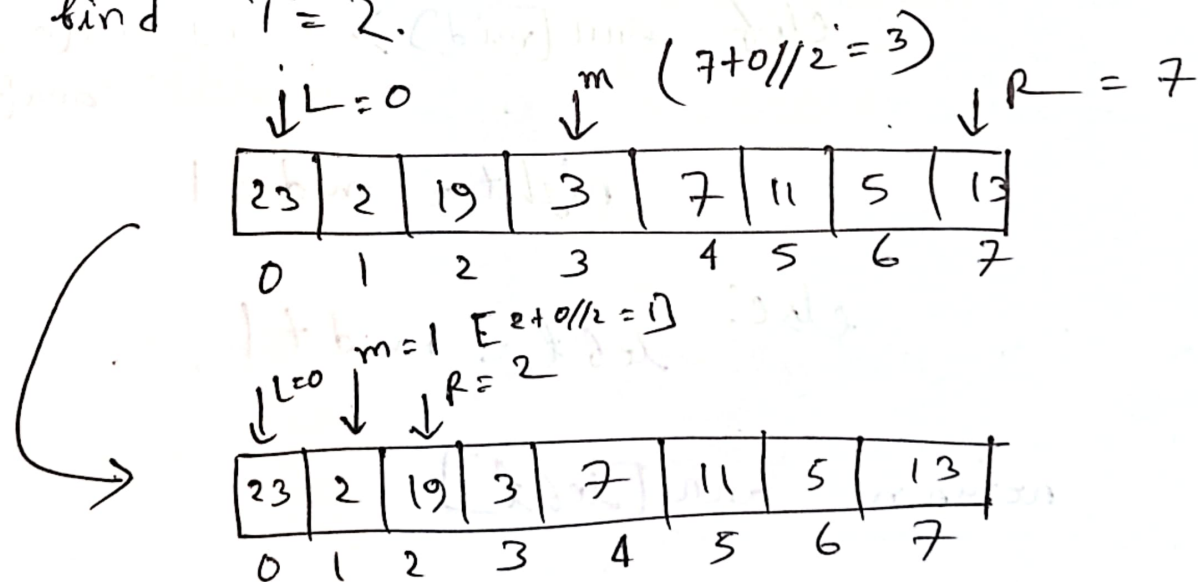 find T = 2.
L=0 m (7+0//2 = 3) R = 7
23 2 19 3 7 11 5 13
0 1 2 3 4 5 6 7
m=1 [2+0//2 = 1]
L=0 R = 2
23 2 19 3 7 11 5 13
0 1 2 3 4 5 6 7